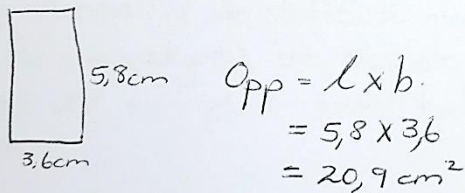 5,8cm
3,6cm
Opp = l x b.
= 5,8 x 3,6
= 20,9 cm²